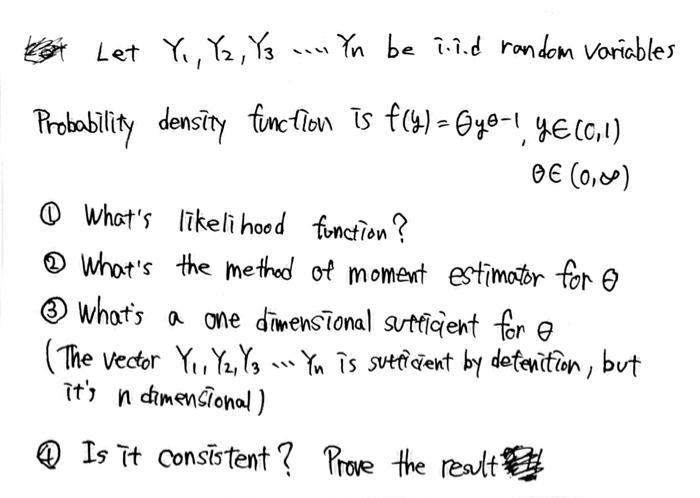 Let Y₁, Y₂, Y₃ .... Yn be i.i.d random variables
Probability density function is f(y) = θy^θ-1, y∈(0,1)
θ∈(0,∞)
① What's likelihood function?
② What's the method of moment estimator for θ
③ What's a one dimensional sufficient for θ
(The vector Y₁, Y₂, Y₃ ... Yn is sufficient by defenition, but
it's n dimensional)
④ Is it consistent? Prove the result